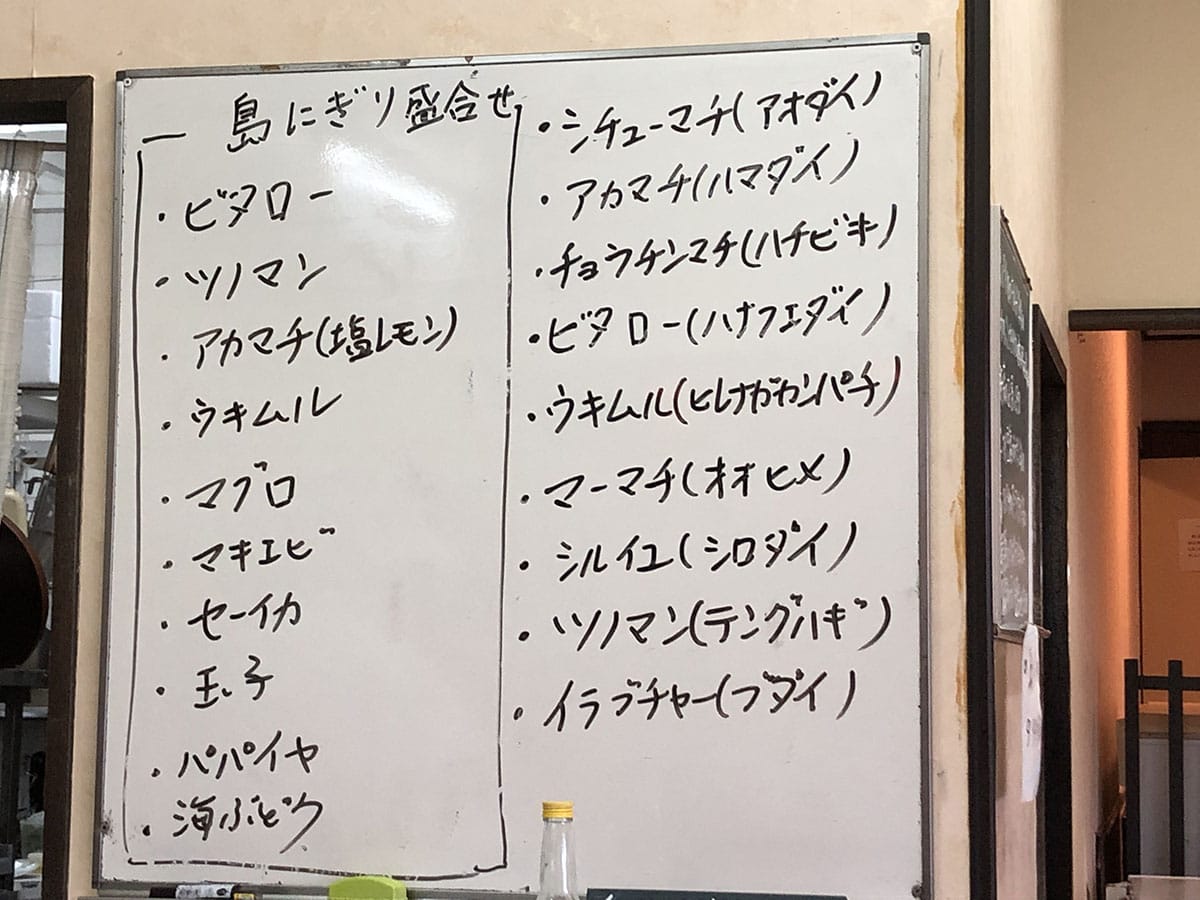 島にぎり盛合せ
・ビタロー
・ツノマン
・アカマチ(塩レモン)
・ウキムル
・マグロ
・マキエビ
・セーイカ
・玉子
・パパイヤ
・海ぶどう
・シチューマチ(アオダイ)
・アカマチ(ハマダイ)
・チョウチンマチ(ハチビキ)
・ビタロー(ハナフエダイ)
・ウキムル(ヒレナガカンパチ)
・マーマチ(オオヒメ)
・シルイユ(シロダイ)
・ツノマン(テングハギ)
・イラブチャー(ブダイ)